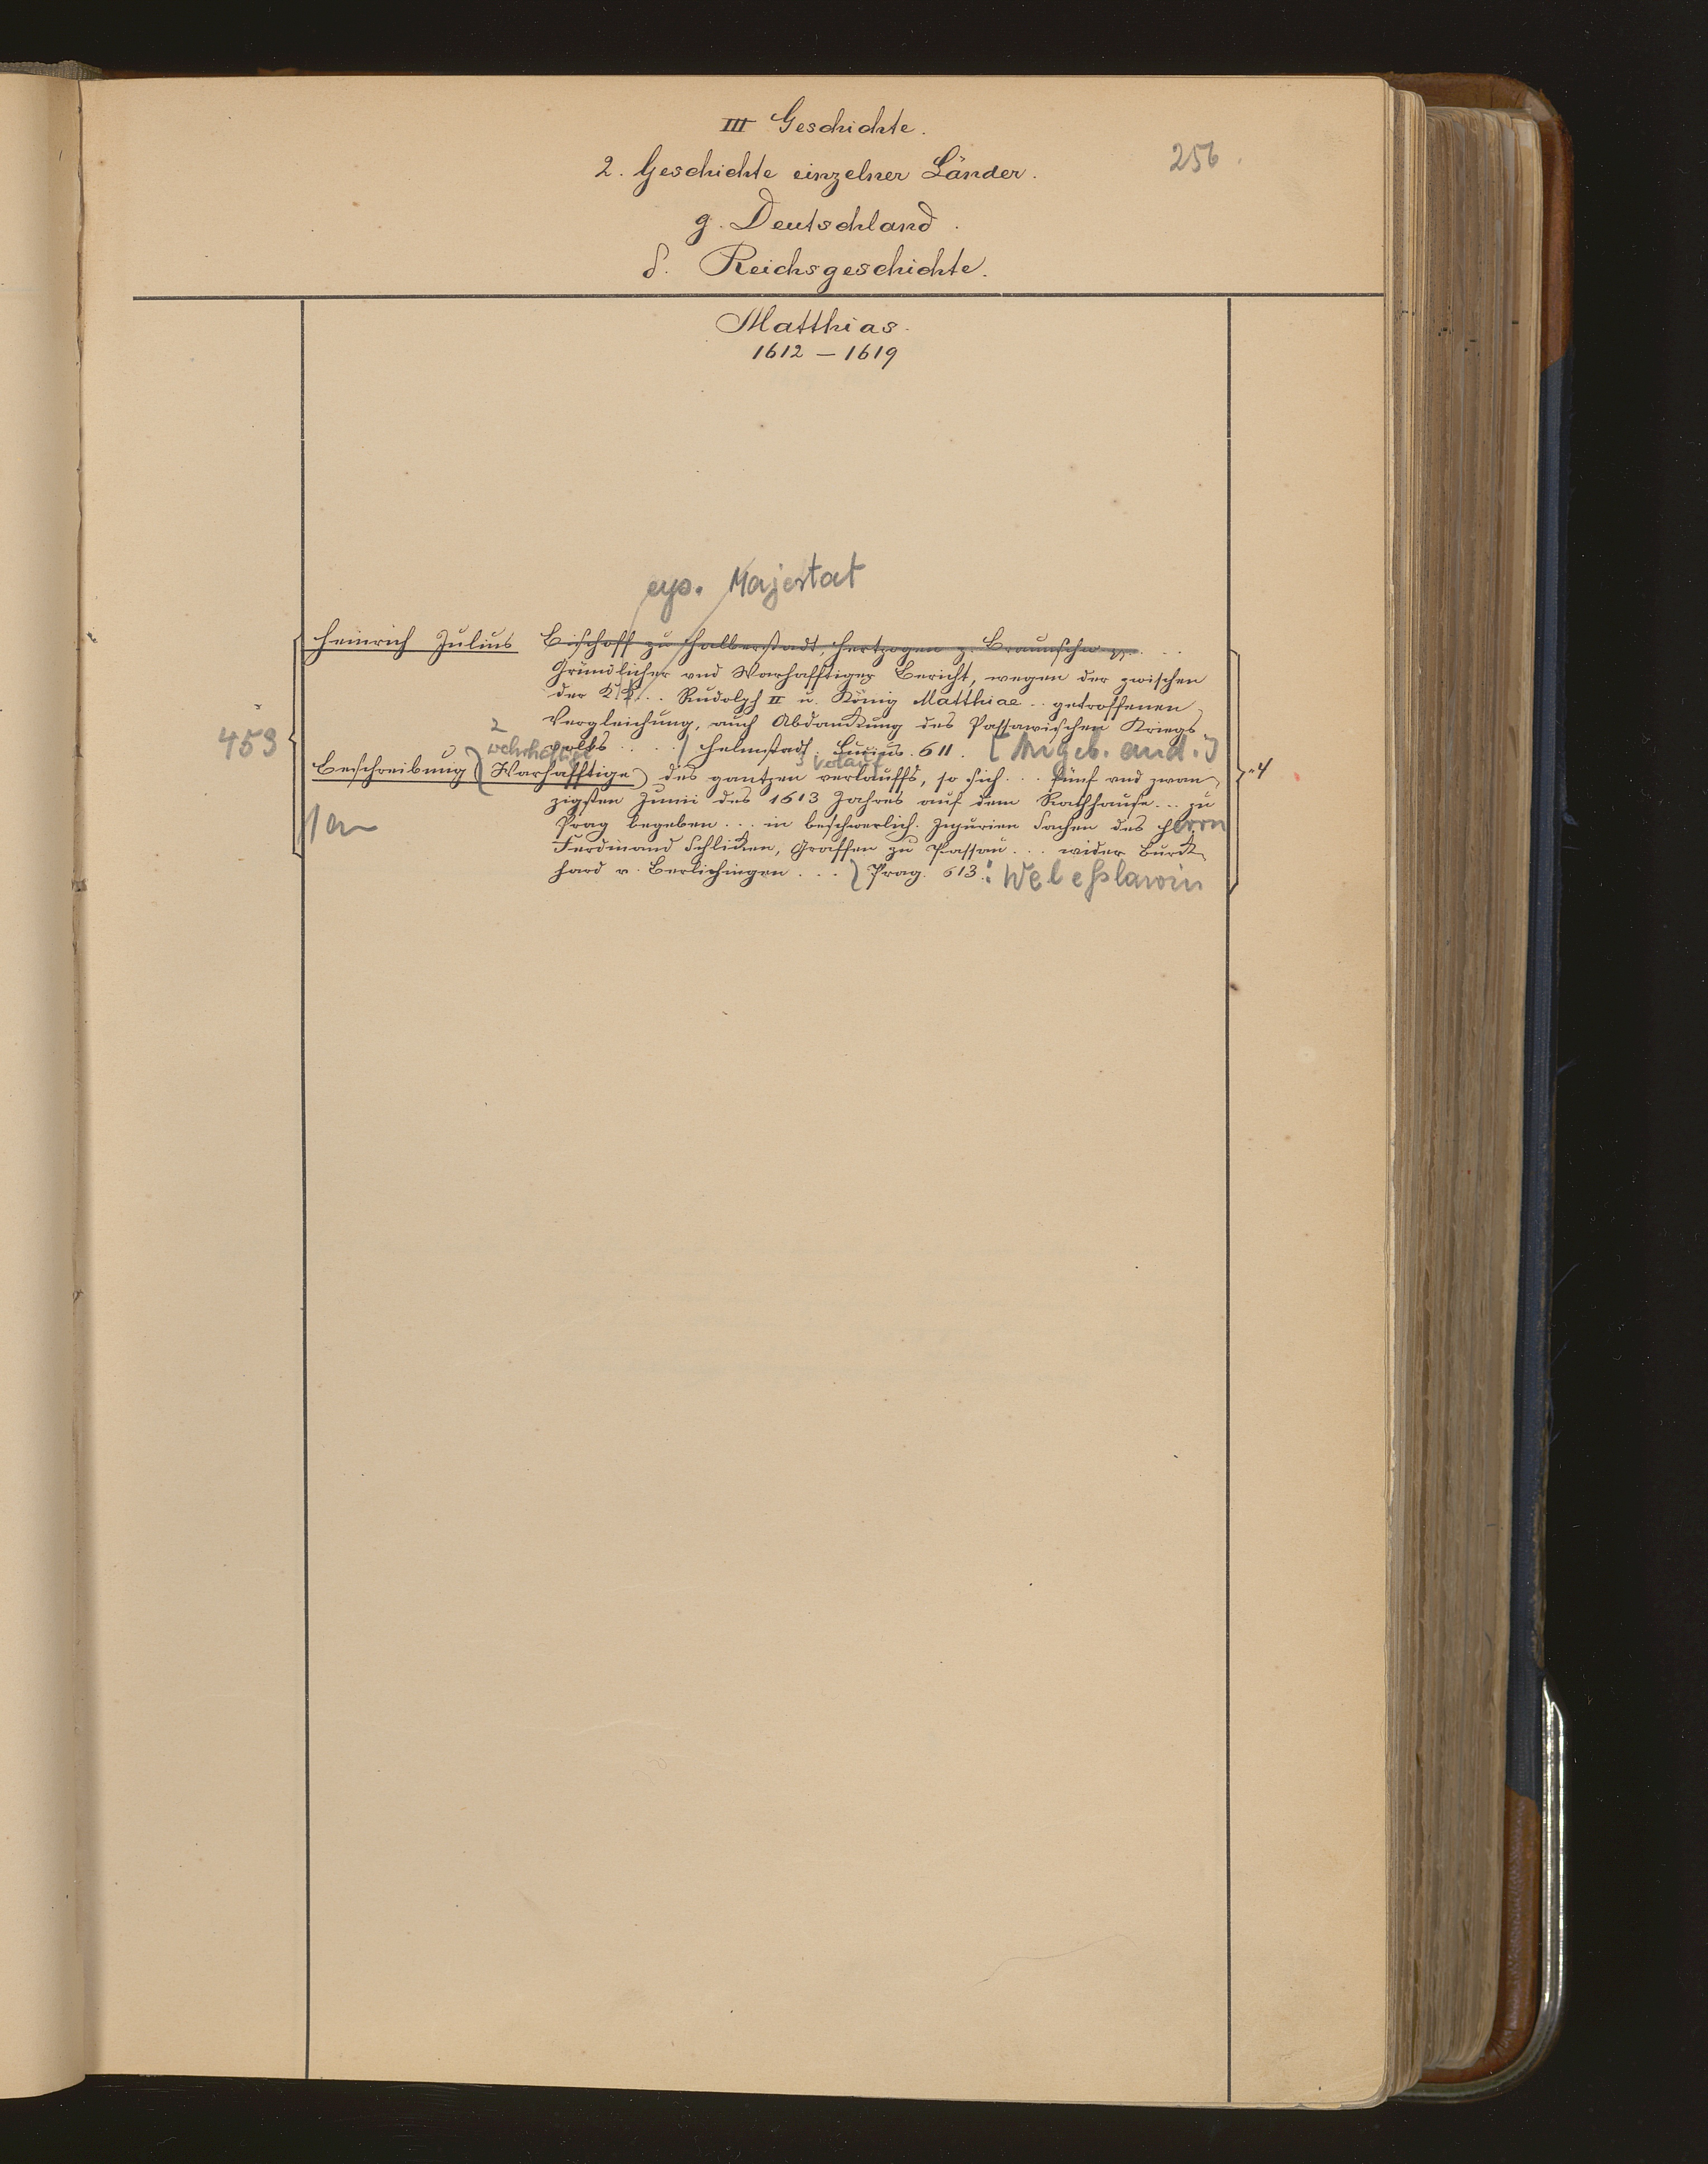 III Geschichte.
256.
2. Geschichte einzelner Länder.
g. Deutschland.
δ. Reichsgeschichte.
Matthias.
1612 – 1619
Majestat
Heinrich Julius Bischoff zu Halberstadt, Hertzogen z. Braunschw. ...
Gründlicher vnd Warhafftiger Bericht, wegen der zwischen
der K. K. .. Rudolph II u. König Matthiae .. getroffenen
Vergleichung, auch Abdankung des Passawischen Kriegs
453
2
volks ... / Helmstadt. Lucius. 611. [ angeb. and. ]
Beschreibung (Warhafftige) des gantzen verlauffs, so sich ... fünf vnd zwan
4
zigsten Junii des 1613 Jahres auf dem Rathhause ... zu
Prag begeben ... in beschwerlich. Injurien Sachen des Herrn
Ferdinand Schlicken, Graffen zu Passau ... wider Burck
hard v. Berlichingen ... Prag. 613. : Weleßlawin